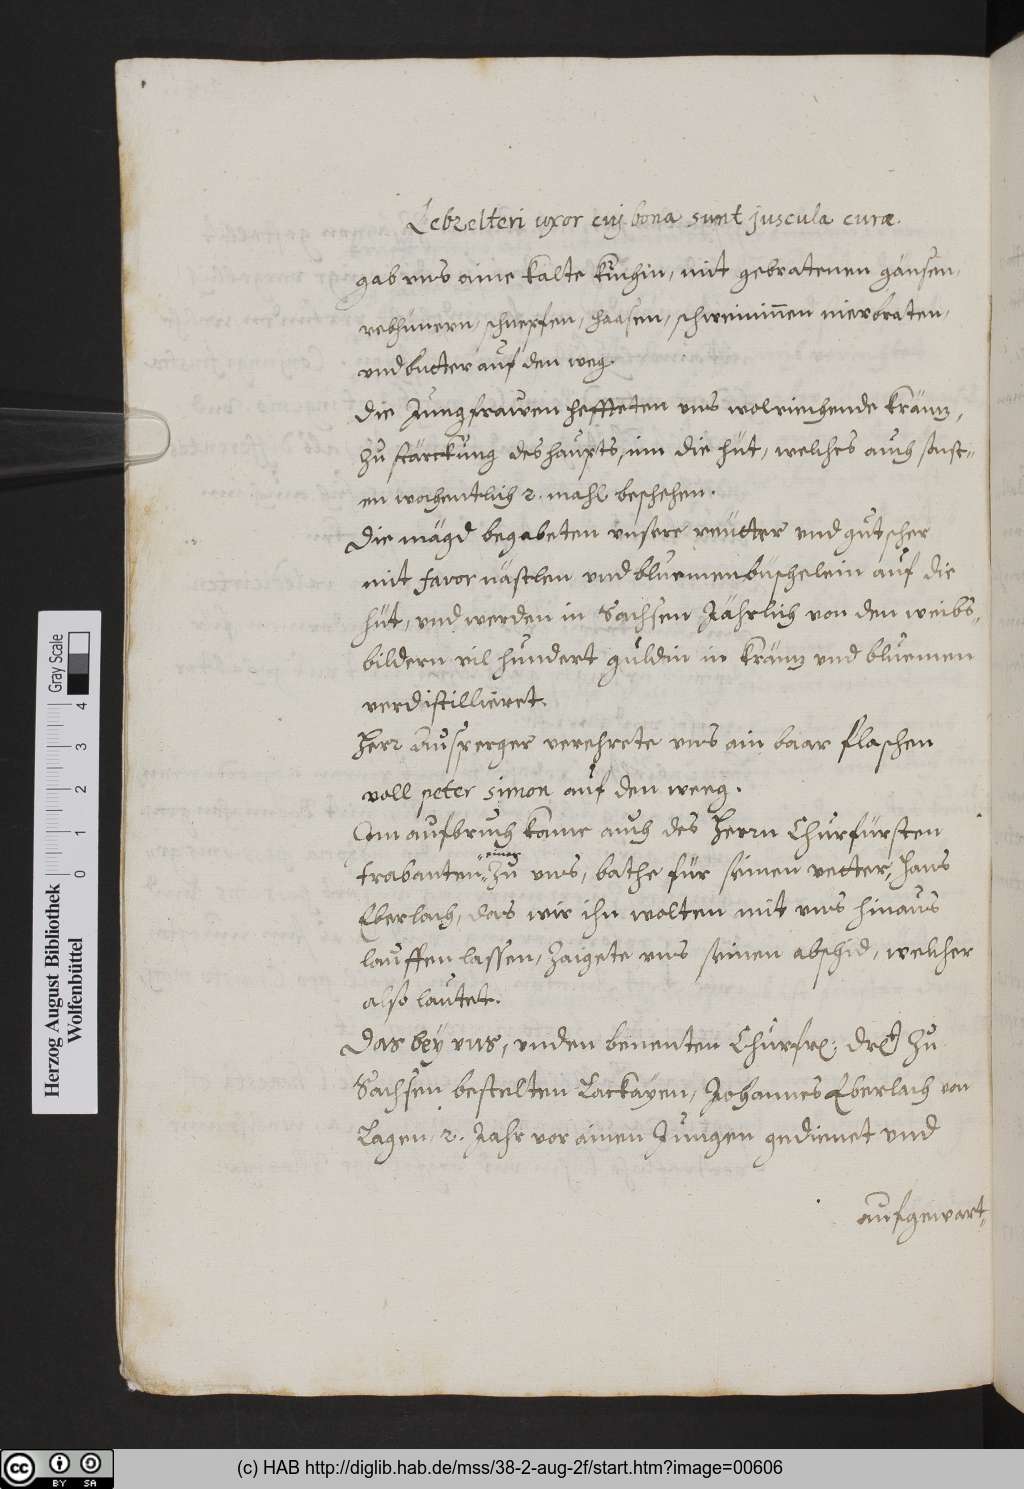 Lebzelteri uxor cuj bona sunt juscula curæ.
gab vns aine kalte kuchin, mit gebratenen gänsen,
rebhünern, schnepfen, haasen, schweininnen nierbraten,
vnd butter auf den weg.
Die Jungfrawen heffteten vns wolriechende kräntz,
zu stärckung des haupts, inn die hüt, welches auch sonst-
en wochentlich 2. mahl beschehen.
Die mägd begabeten vnsere reütter vnd gutscher
mit favor nästlen vnd bluemenbüschelein auf die
hüt, vnd werden in Sachsen Jährlich von den weibs-
bildern vil hundert guldin in kräntz vnd bluemen
verdistillieret.
Herr Ausperger verehrete vns ain baar flaschen
voll peter simon auf den weeg.
Am aufbruch kame auch des Herrn Churfürsten
trabanten einer zu vns, bathe für seinen vetter, Hans
Eberlach, das wir ihn wolten mit vns hinaus
lauffen lassen, zaigete vns seinen abschid, welcher
also lautet.
Das bey vns, vnden benenten Churfrl: Drl: zu
Sachsen bestelten Lackayen, Johannes Eberlach von
Lagen, 2. Jahr vor ainen Jungen gedienet vnd
aufgewart-
Herzog August Bibliothek
Wolfenbüttel
0 1 2 3 4
Gray Scale
cc BY SA
(c) HAB http://diglib.hab.de/mss/38-2-aug-2f/start.htm?image=00606